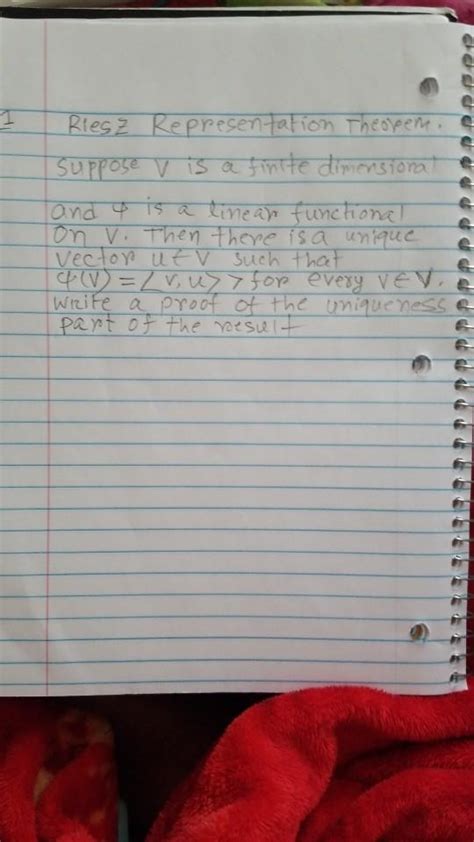 1 Riesz Representation Theorem.
Suppose V is a finite dimensional
and φ is a linear functional
on V. Then there is a unique
vector u ∈ V such that
φ(V) = <v, u> > for every v ∈ V.
write a proof of the uniqueness
part of the result